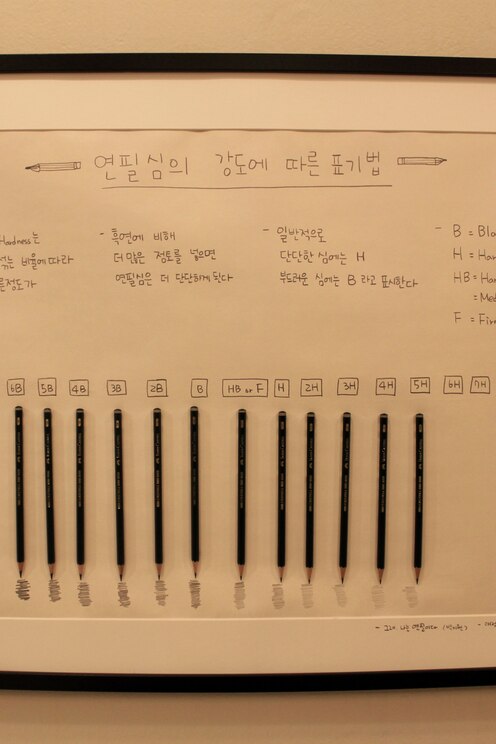 연필심의 강도에 따른 표기법
Hardness는
섞는 비율에 따라
- 흑연에 비해
더 많은 점토를 넣으면
연필심은 더 단단하게 된다
- 일반적으로
단단한 심에는 H
부드러운 심에는 B 라고 표시한다
- B = Bla
H = Har
HB = Har
= Med
F = Fir
6B 5B 4B 3B 2B B HB or F H 2H 3H 4H 5H 6H 7H
- 그래, 나는 연필이다